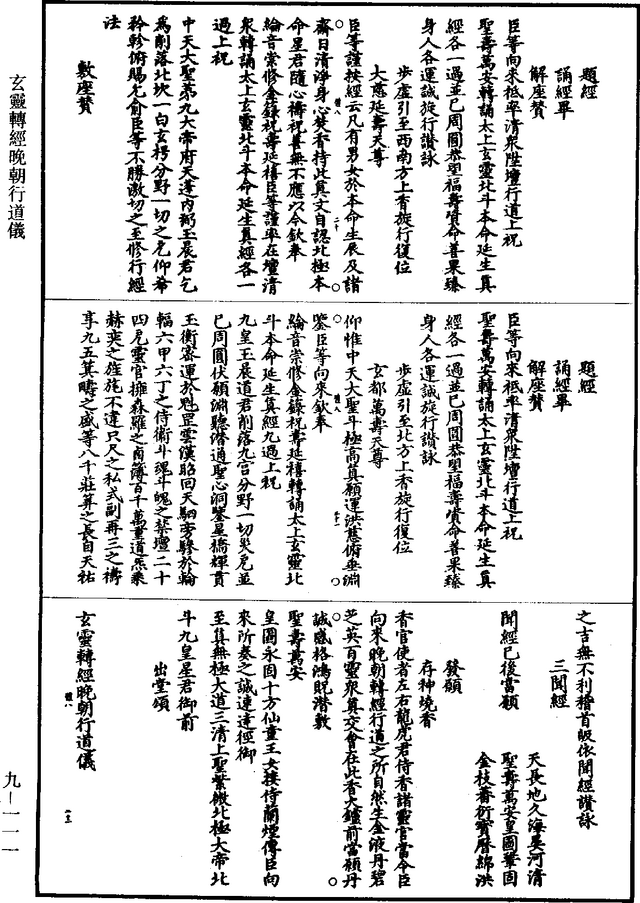 題經
誦經畢
解座贊
臣等向來祗率清衆陞壇行道上祝
聖壽萬安轉誦太上玄靈北斗本命延生真
經各一過並已周圓恭望福壽資命善果臻
身人各運誠旋行讚詠
步虛引至西南方上香旋行復位
大慈延壽天尊
臣等謹按經云凡有男女於本命生辰及諸
齋日清淨身心焚香持此真文自認北極本
命星君隨心禱祝善無不應以今欽奉
綸音崇修金籙祝壽延禧臣等謹率在壇清
衆轉誦太上玄靈北斗本命延生真經各一
過上祝
中天大聖第九大帝府天蓬內弼玉晨君乞
爲削落北坎一白玄枵分野一切之厄仰希
矜軫俯賜允俞臣等不勝激切之至修行經
法
敷座贊
題經
誦經畢
解座贊
臣等向來祗率清衆陞壇行道上祝
聖壽萬安轉誦太上玄靈北斗本命延生真
經各一過並已周圓恭望福壽資命善果臻
身人各運誠旋行讚詠
步虛引至北方上香旋行復位
玄都萬壽天尊
仰惟中天大聖斗極高真願運洪慈俯垂淵
鑒臣等向來欽奉
綸音崇修金籙祝壽延禧轉誦太上玄靈北
斗本命延生真經九過上祝
九皇玉晨道君削落九宮分野一切災厄並
已周圓伏願淵聽潛通聖心洞鑒星橋輝貫
玉衡密運於魁罡雲漢昭回天駟旁驂於輪
輻六甲六丁之侍衛斗魂斗魄之禁壇二十
四尼靈官擁森羅之鹵簿百千萬重道炁乘
赫奕之旌旄不違只尺之私式副再三之禱
享九五箕疇之盛等八千莊算之長自天祐
之吉無不利稽首皈依聞經讚詠
三聞經
天長地久海晏河清
聖壽萬安皇圖鞏固
金枝蕃衍寶曆綿洪
聞經已後當願
發願
存神燒香
香官使者左右龍虎君侍香諸靈官當令臣
向來晚朝轉經行道之所自然生金液丹碧
芝英百靈衆真交會在此香火鑪前當願丹
誠感格鴻貺潛敷
聖壽萬安
皇圖永固十方仙童玉女接侍蘭煙傳臣向
來所奏之誠速達徑御
至真無極大道三清上聖紫微北極大帝北
斗九皇星君御前
出堂頌
玄靈轉經晚朝行道儀
玄靈轉經晚朝行道儀
九—一一一